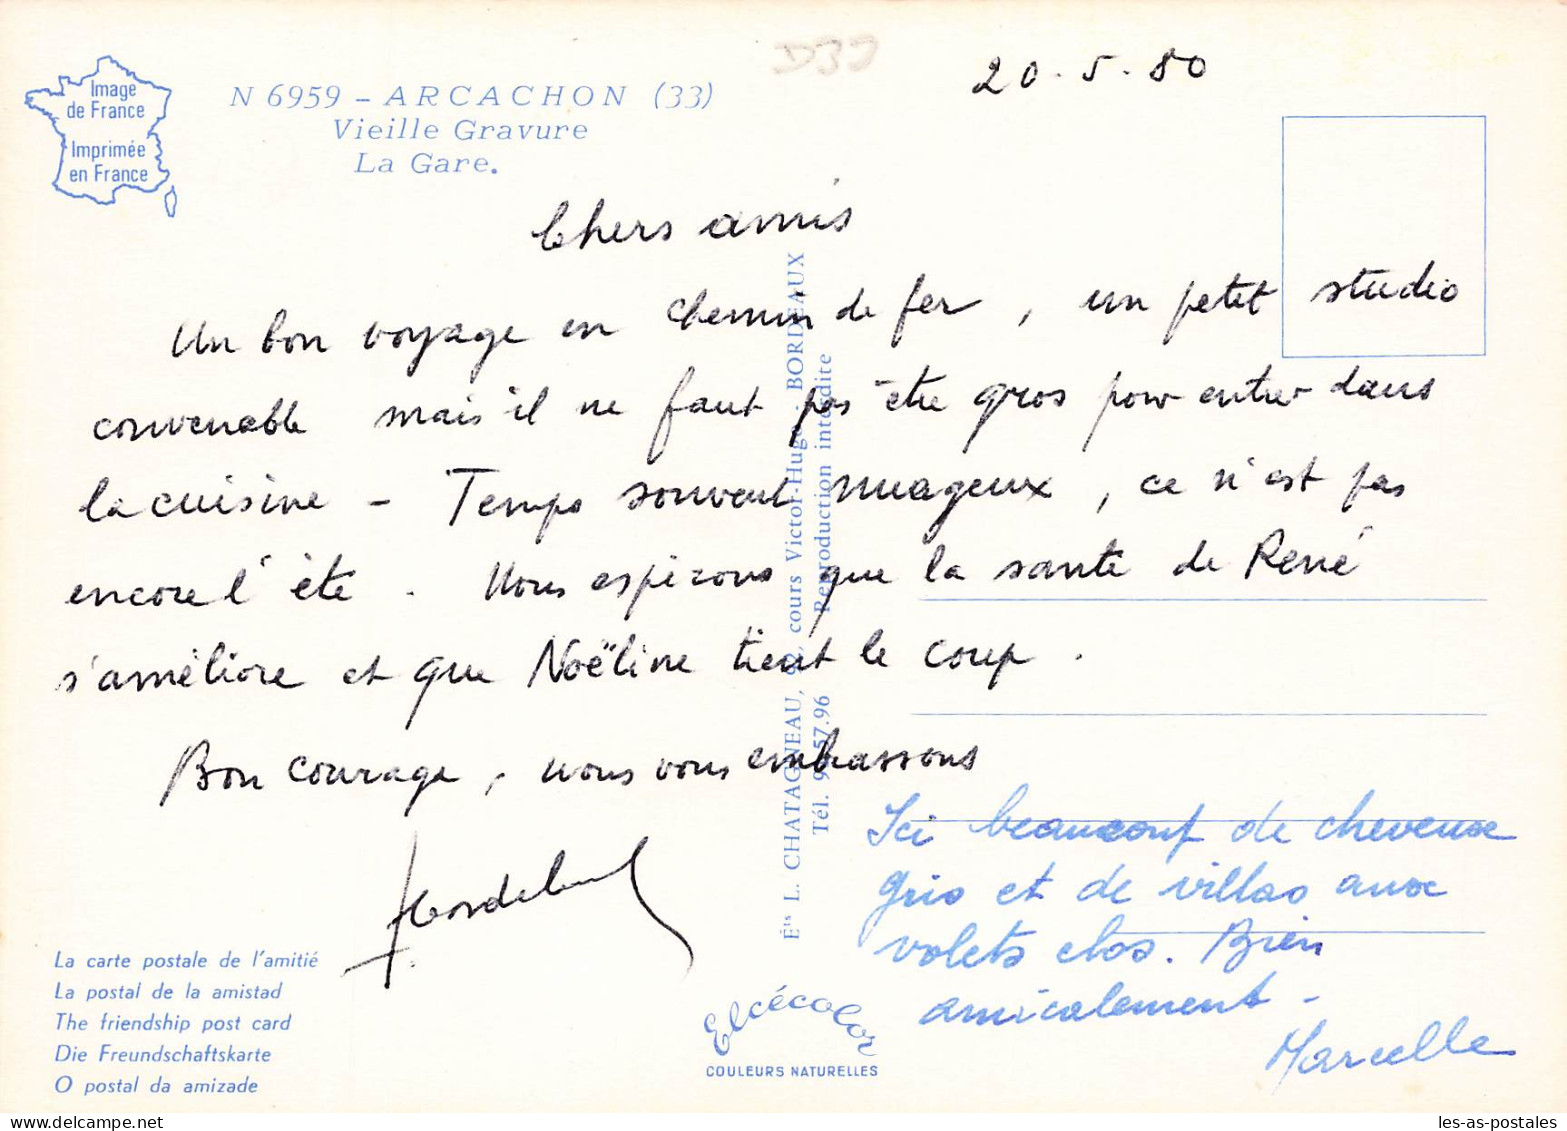 D33
20.5.80
Image
de France
Imprimée
en France
N 6959 - ARCACHON (33)
Vieille Gravure
La Gare.
Chers amis
Un bon voyage en chemin de fer, un petit studio
convenable mais il ne faut pas être gros pour entrer dans
la cuisine - Temps souvent nuageux, ce n'est pas
encore l'été. Nous espérons que la santé de René
s'améliore et que Noëline tient le coup.
Bon courage, nous vous embrassons
Ici beaucoup de cheveux
gris et de villas aux
volets clos. Bien
amicalement -
Marcelle
Éts L. CHATAGNEAU, cours Victor-Hugo - BORDEAUX
Tél. 57.96 Reproduction interdite
La carte postale de l'amitié
La postal de la amistad
The friendship post card
Die Freundschaftskarte
O postal da amizade
Elcécolor
COULEURS NATURELLES
les-as-postales